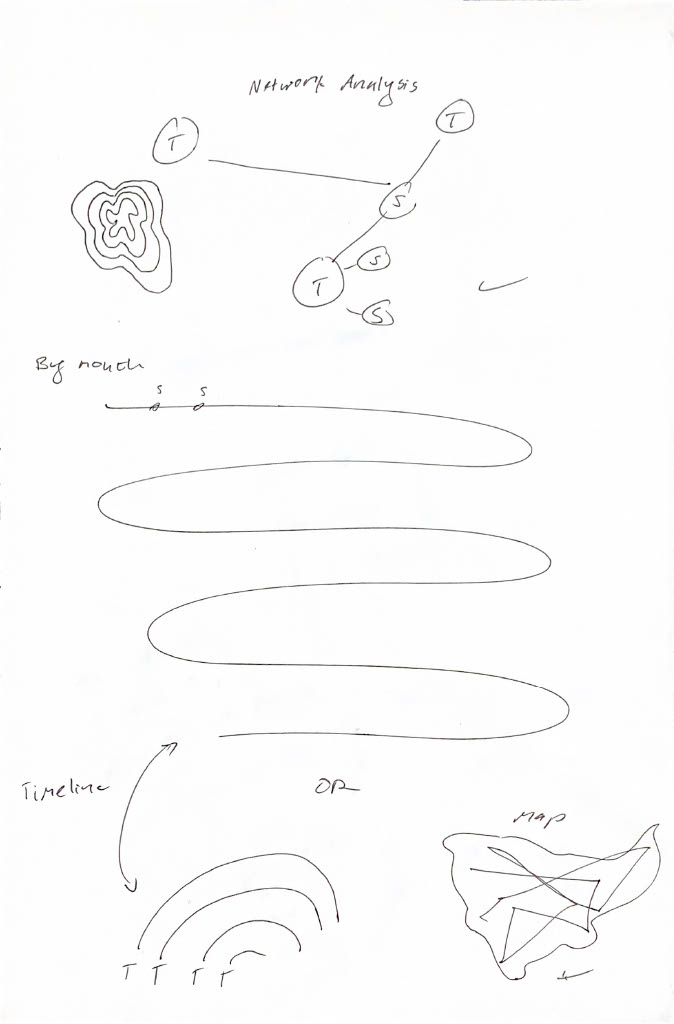 Network Analysis
T
T
S
T
S
S
By month
S S
Timeline
OR
Map
T T T T